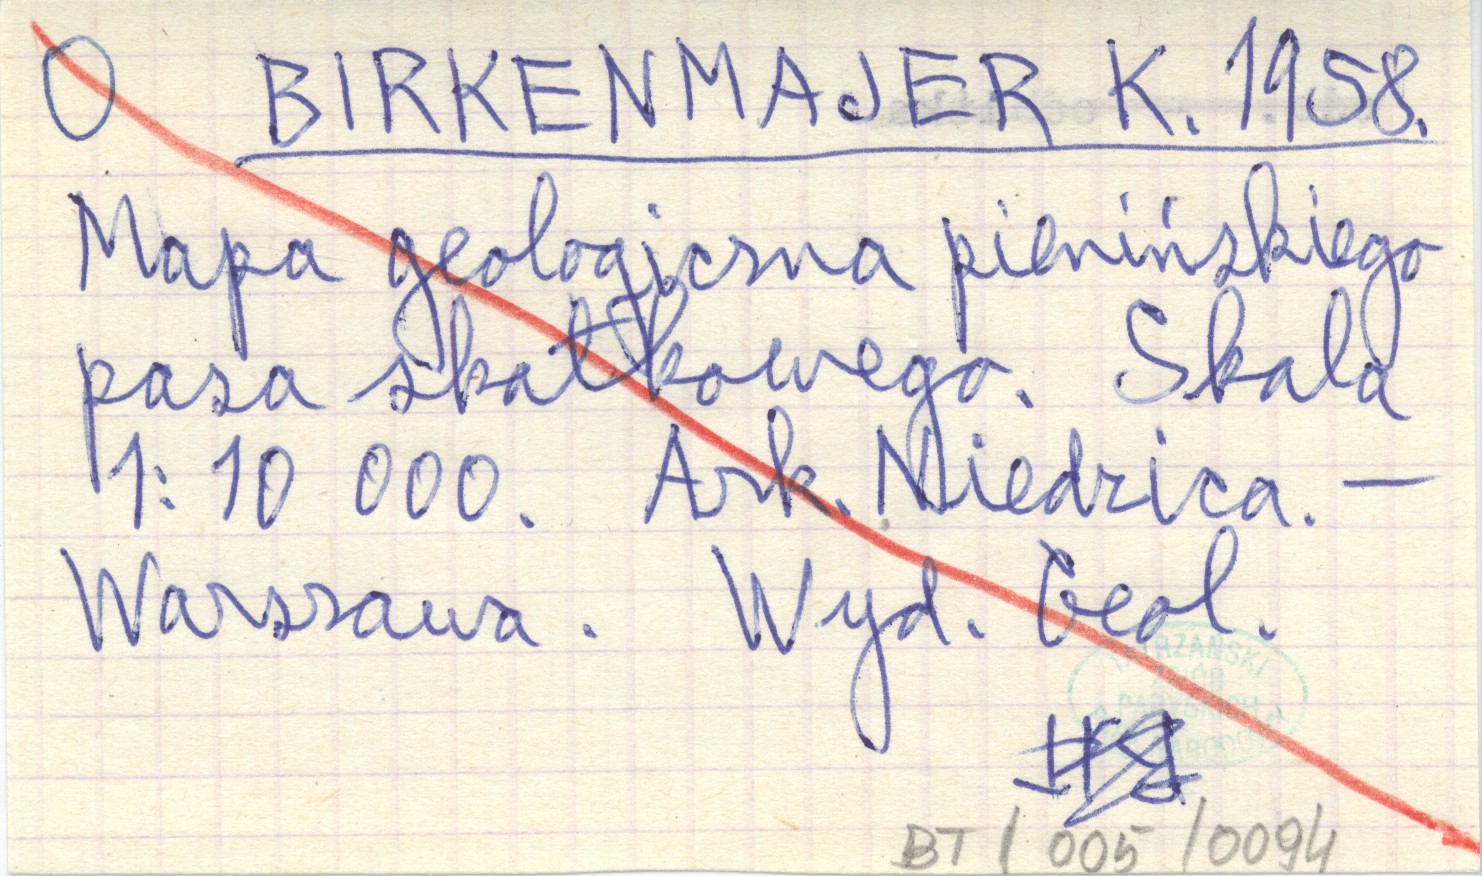 O BIRKENMAJER K. 1958.
Mapa geologiczna pienińskiego
pasa skałkowego. Skala
1: 10 000. Ark. Niedzica. —
Warszawa. Wyd. Geol.
TATRZAŃSKI
BT / 005 / 0094